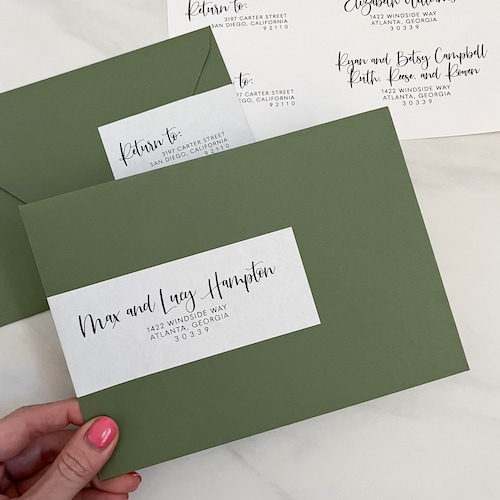 Return to:
3197 CARTER STREET
SAN DIEGO, CALIFORNIA
92110
Elizabeth Williams
1422 WINDSIDE WAY
ATLANTA, GEORGIA
30339
to:
3197 CARTER STREET
SAN DIEGO, CALIFORNIA
92110
Ryan and Betsy Campbell
Ruth, Reese, and Rowen
1422 WINDSIDE WAY
ATLANTA, GEORGIA
30339
Return to:
3197 CARTER STREET
SAN DIEGO, CALIFORNIA
92110
Max and Lucy Hampton
1422 WINDSIDE WAY
ATLANTA, GEORGIA
30339